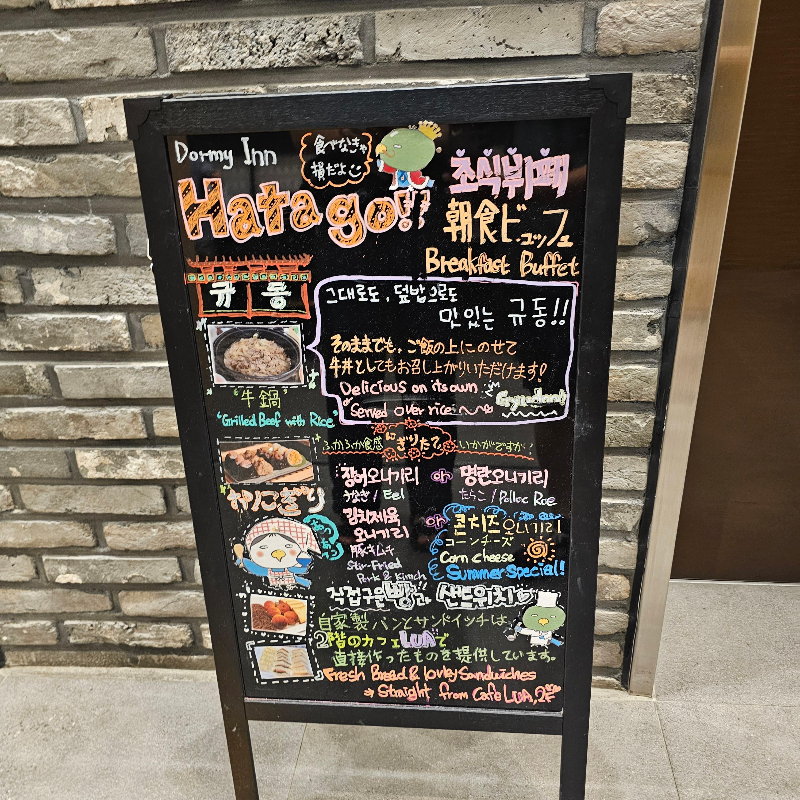 Dormy Inn
食べなきゃ
損だよ
Hatago!!
조식뷔페
朝食ビュッフェ
Breakfast Buffet
규동
그대로도, 덮밥으로도
맛있는 규동!!
そのままでも、ご飯の上にのせて
牛丼としてもお召し上がりいただけます!
Delicious on its own
Served over rice
"牛鍋"
"Grilled Beef with Rice"
ふかふか食感 にぎりたて いかがですか?
장어오니기리 or 명란오니기리
うなぎ / Eel たらこ / Polloc Roe
おにぎり
김치제육
오니기리
豚キムチ
Stir-Fried
Pork & Kimch
or 콘치즈오니기리
コーンチーズ
Corn cheese
Summer Special!
직접구운빵과, 샌드위치
自家製パンとサンドイッチは、
2階のカフェLUAで
直接作ったものを提供しています。
Fresh Bread & lovley Sandwiches
Straight from Cafe LUA, 2F